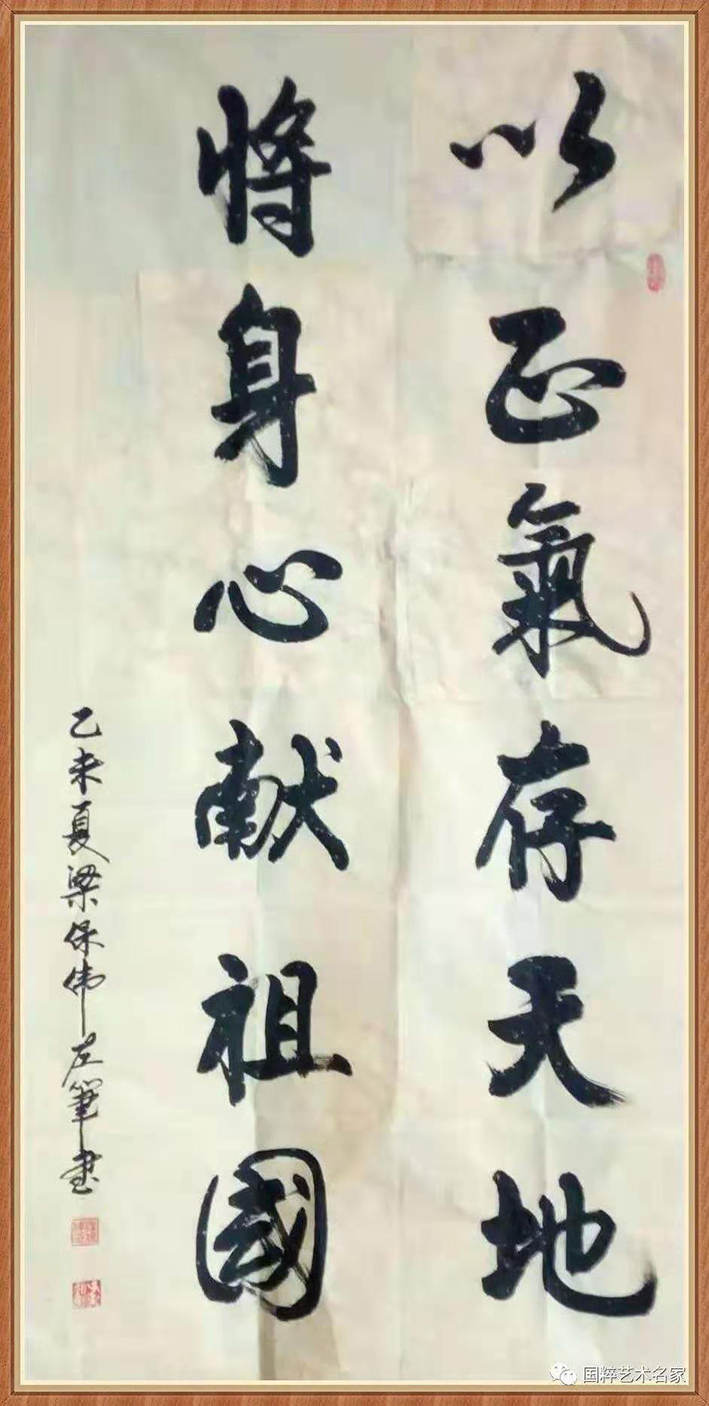 以正氣存天地
将身心献祖國
乙未夏梁保伟左筆书
国粹艺术名家